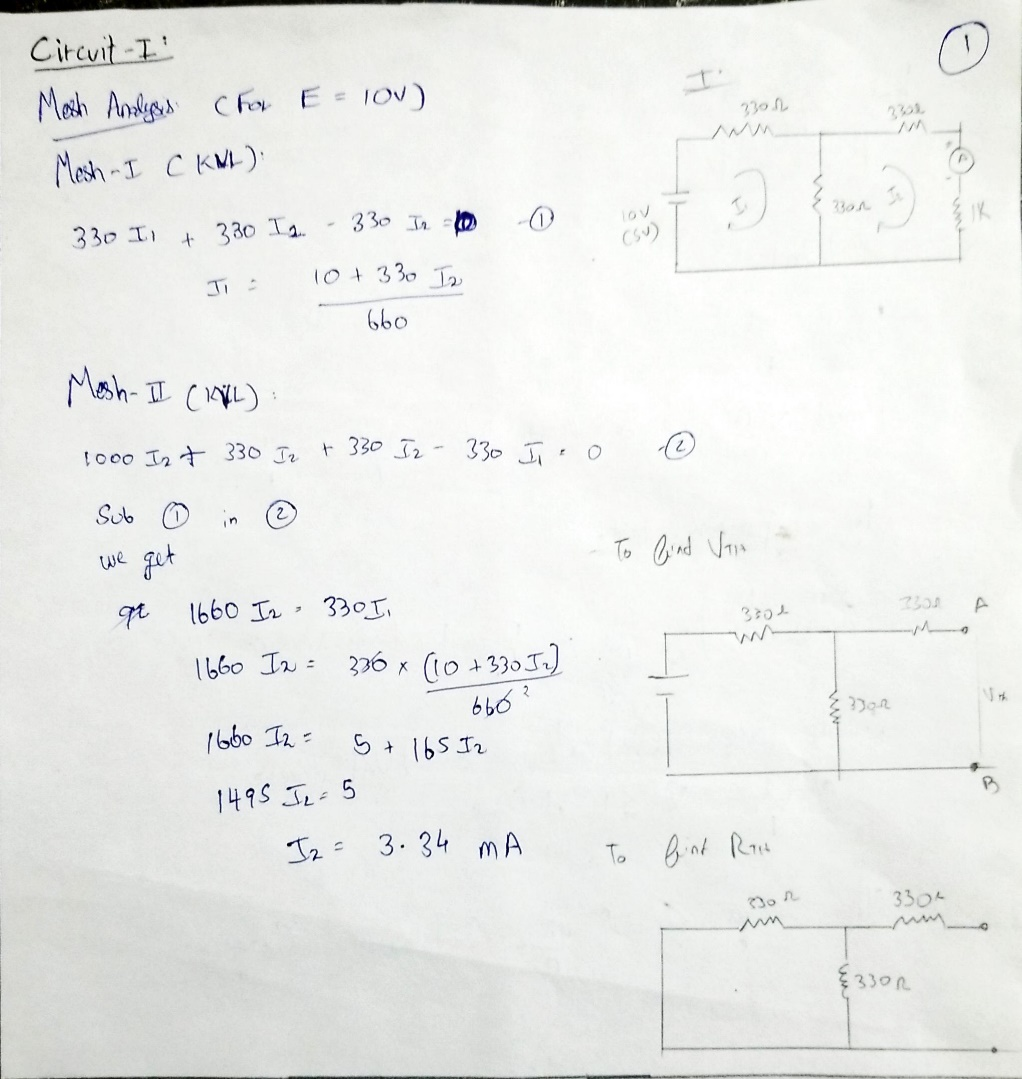 Circuit-I:
1
Mesh Analysis (For E = 10V)
Mesh-I (KVL):
330 I1 + 330 I1 - 330 I2 = 10 -①
I1 = 10 + 330 I2
660
Mesh-II (KVL):
1000 I2 + 330 I2 + 330 I2 - 330 I1 = 0 -②
Sub ① in ②
we get
1660 I2 = 330 I1
1660 I2 = 330 x (10 + 330 I2)
660 2
1660 I2 = 5 + 165 I2
1495 I2 = 5
I2 = 3.34 mA
I.
330Ω
330Ω
A
10V
(5V)
I1
330Ω
I2
1K
To find VTH
330Ω
330Ω
A
330Ω
B
To find RTH
330Ω
330Ω
330Ω